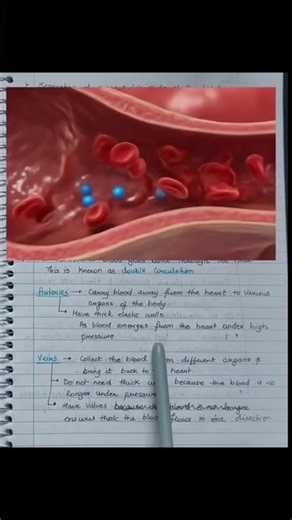 This is known as double circulation
Arteries → Carry blood away from the heart to various
organs of the body
→ Have thick elastic walls
As blood emerges from the heart under high
pressure
Veins → Collect the blood different organs &
bring it back to heart
→ Do not need thick because the blood is no
longer under pressure
→ Have valves
ensures that the blood flows in one direction